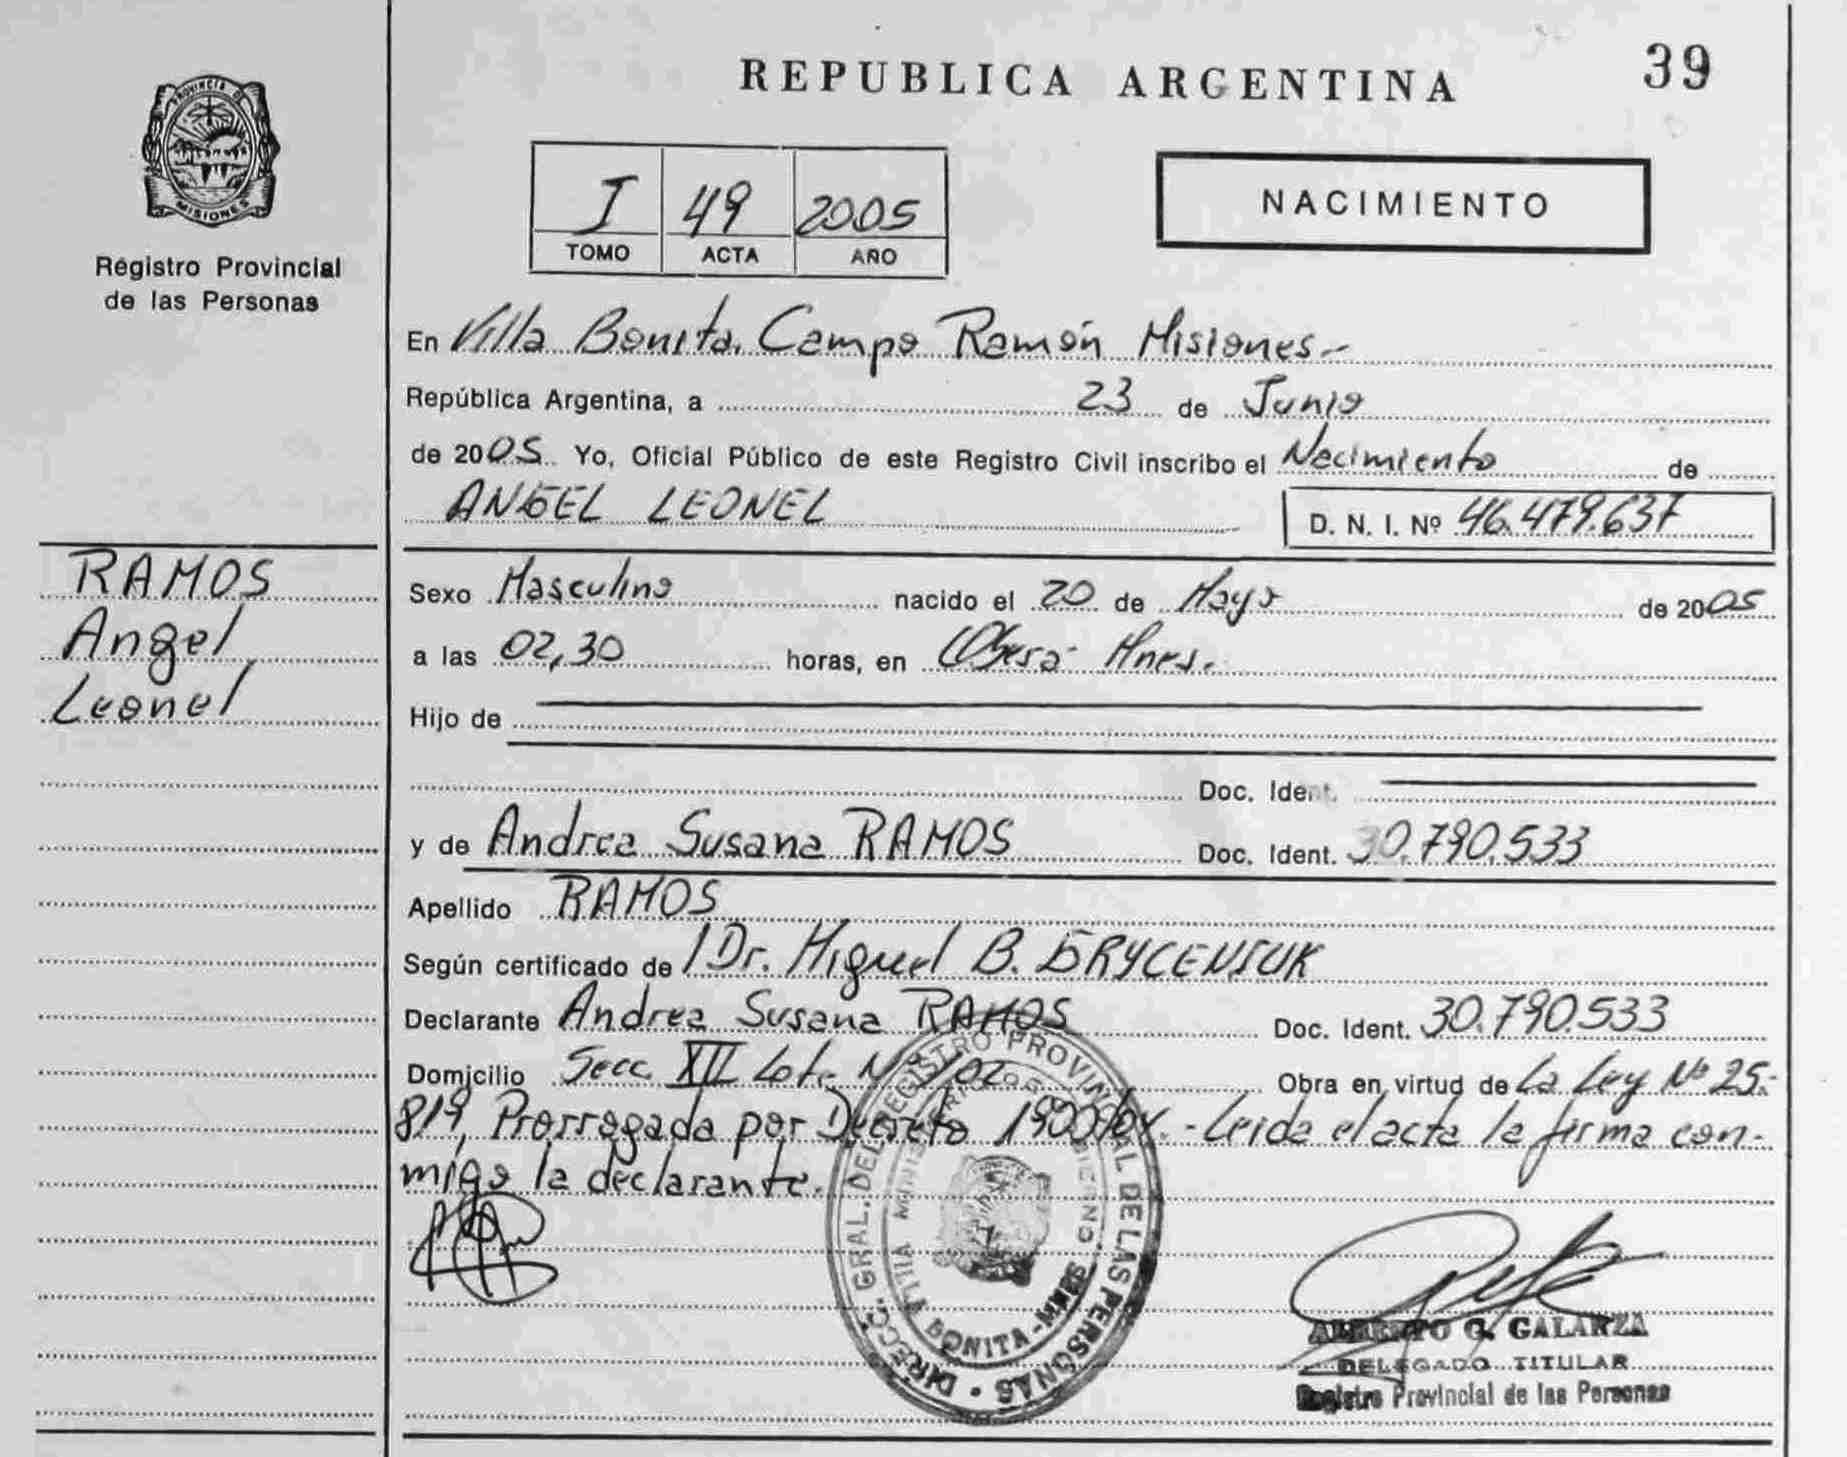 REPUBLICA ARGENTINA
39
PROVINCIA DE
MISIONES
Registro Provincial
de las Personas
I 49 2005
TOMO ACTA AÑO
NACIMIENTO
En Villa Bonita. Campo Ramón Misiones.-
República Argentina, a 23 de Junio
de 2005. Yo, Oficial Público de este Registro Civil inscribo el Nacimiento de
ANGEL LEONEL
D. N. I. Nº 46.479.637
RAMOS
Angel
Leonel
Sexo Masculino nacido el 20 de Mayo de 2005
a las 02,30 horas, en Oberá Mnes.
Hijo de
Doc. Ident.
y de Andrea Susana RAMOS Doc. Ident. 30.790.533
Apellido RAMOS
Según certificado de Dr. Miguel B.
Declarante Andrea Susana RAMOS Doc. Ident. 30.790.533
Domicilio Secc. XII Lote Nº 102 Obra en virtud de La Ley Nº 25.-
819, Prorrogada por Decreto -Leida el acta la firma con-
migo la declarante.
DIRECC. GRAL. DEL REGISTRO PROVINCIAL DE LAS PERSONAS
VILLA BONITA - MNES
ALBERTO G. GALARZA
DELEGADO TITULAR
Registro Provincial de las Personas